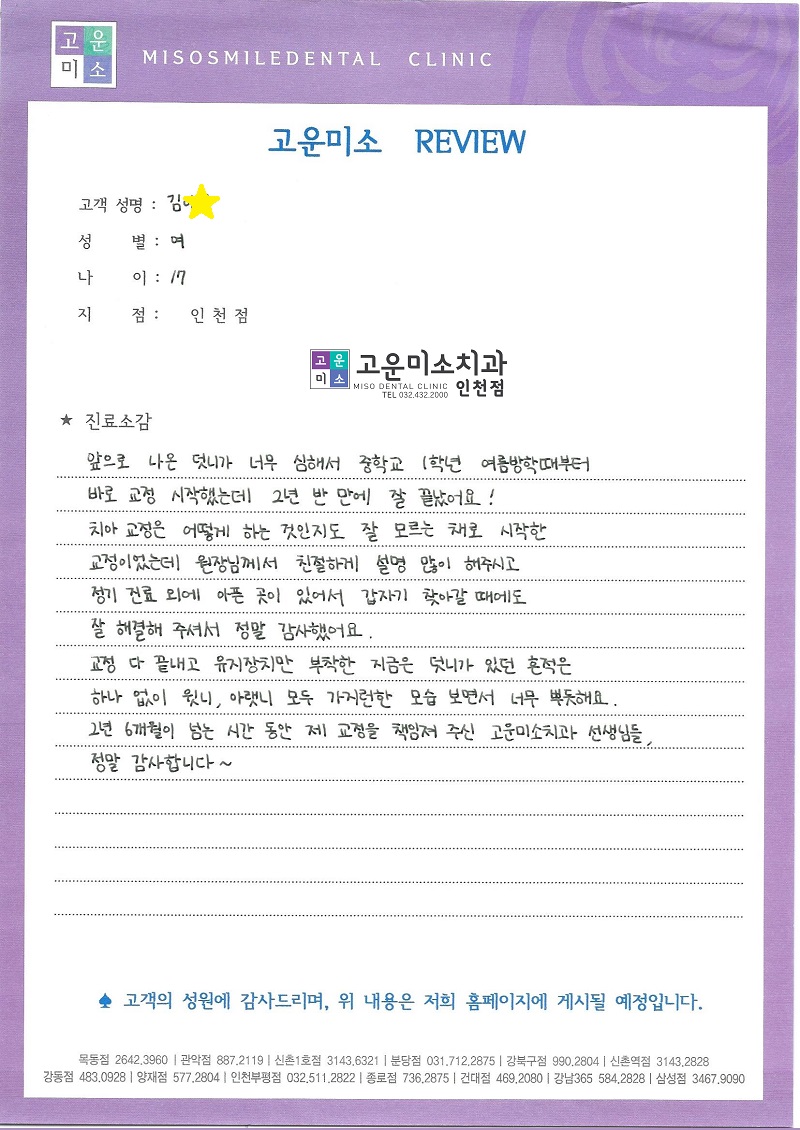 고운
미소
MISOSMILEDENTAL CLINIC
고운미소 REVIEW
고객 성명 : 김
성 별 : 여
나 이 : 17
지 점 : 인천점
고운
미소
고운미소치과
MISO DENTAL CLINIC
TEL 032.432.2000
인천점
★ 진료소감
앞으로 나온 덧니가 너무 심해서 중학교 1학년 여름방학때부터
바로 교정 시작했는데 2년 반 만에 잘 끝났어요!
치아 교정은 어떻게 하는 것인지도 잘 모르는 채로 시작한
교정이었는데 원장님께서 친절하게 설명 많이 해주시고
정기 진료 외에 아픈 곳이 있어서 갑자기 찾아갈 때에도
잘 해결해 주셔서 정말 감사했어요.
교정 다 끝내고 유지장치만 부착한 지금은 덧니가 있던 흔적은
하나 없이 윗니, 아랫니 모두 가지런한 모습 보면서 너무 뿌듯해요.
2년 6개월이 넘는 시간 동안 제 교정을 책임져 주신 고운미소치과 선생님들,
정말 감사합니다~
♠ 고객의 성원에 감사드리며, 위 내용은 저희 홈페이지에 게시될 예정입니다.
목동점 2642.3960 | 관악점 887.2119 | 신촌1호점 3143.6321 | 분당점 031.712.2875 | 강북구점 990.2804 | 신촌역점 3143.2828
강동점 483.0928 | 양재점 577.2804 | 인천부평점 032.511.2822 | 종로점 736.2875 | 건대점 469.2080 | 강남365 584.2828 | 삼성점 3467.9090